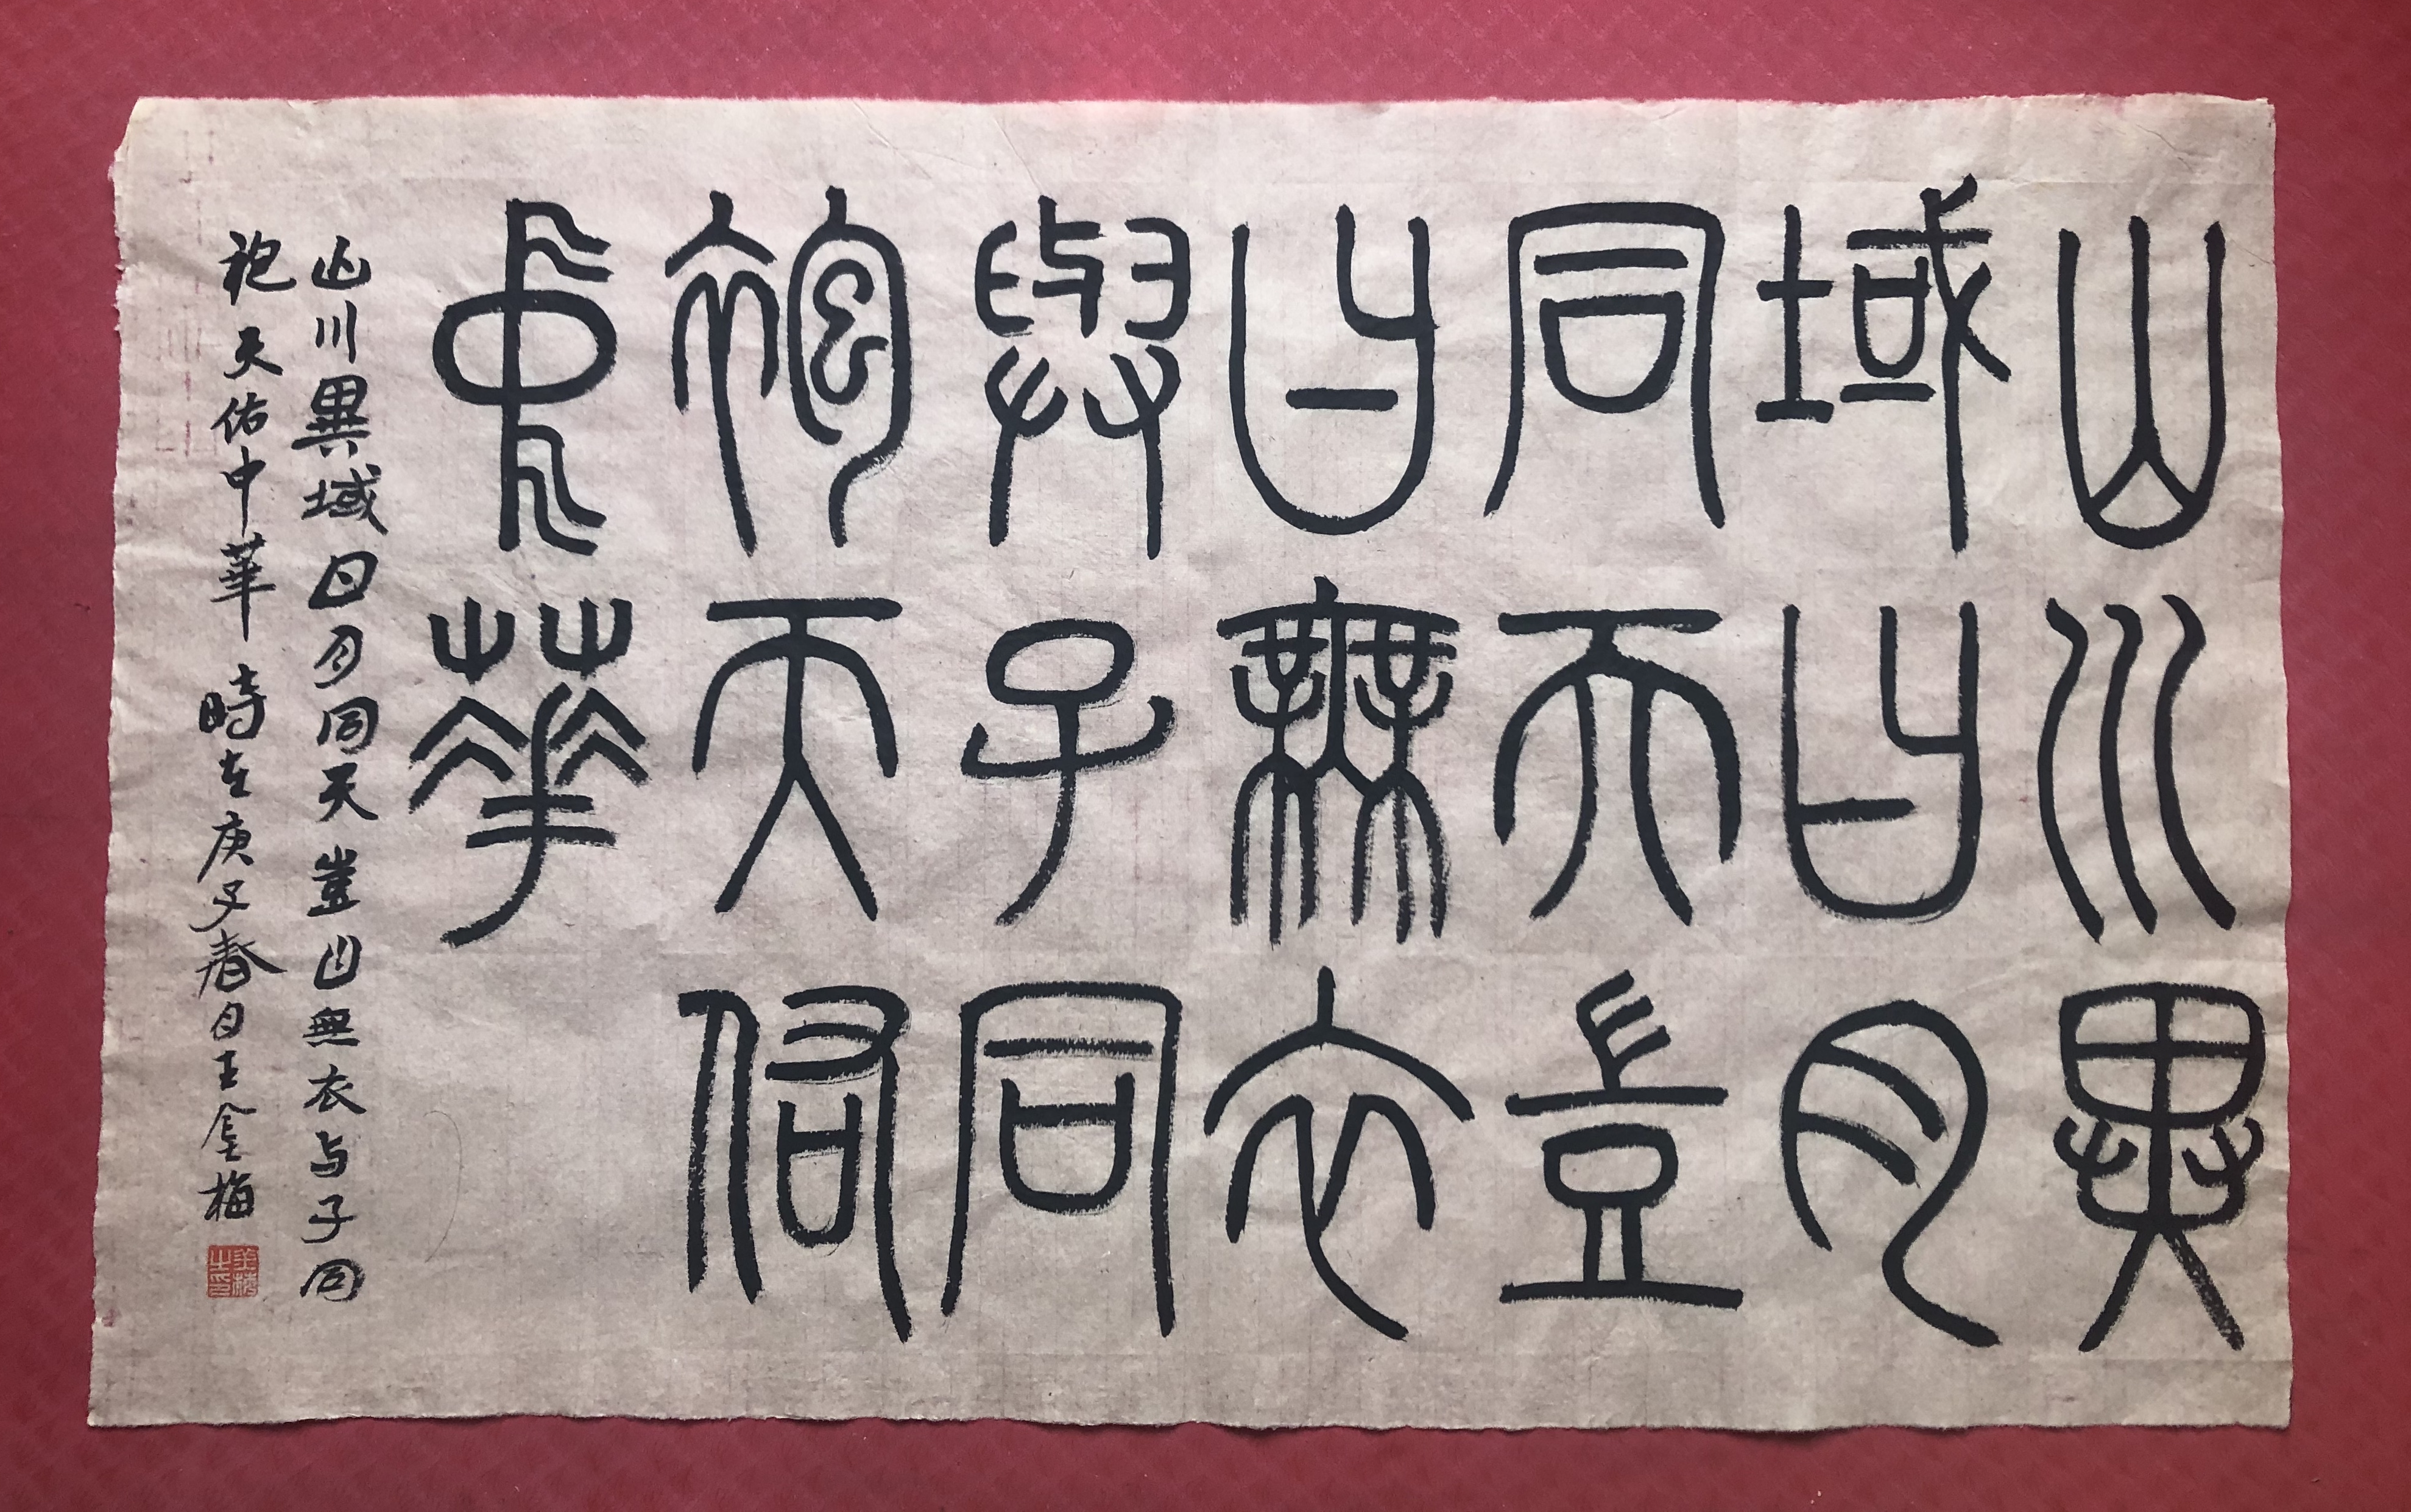 山川異
域日月
同天豈
曰無衣
與子同
袍天佑
中華
山川異域日月同天豈曰無衣与子同
袍天佑中華時在庚子春日王金梅
金梅之印